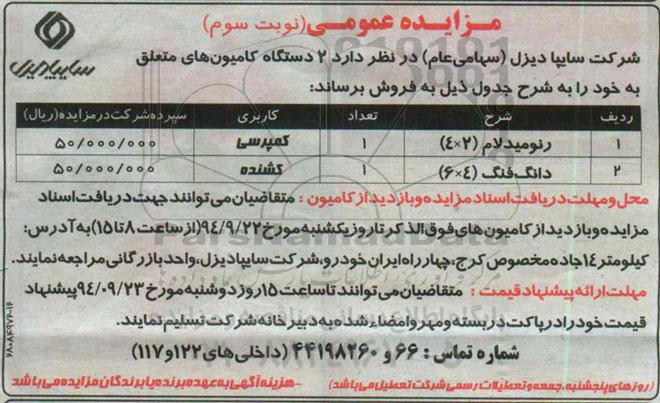 مزایده عمومی (نوبت سوم)
سایپا دیزل
شرکت سایپا دیزل (سهامی عام) در نظر دارد ۲ دستگاه کامیون‌های متعلق
به خود را به شرح جدول ذیل به فروش برساند:
ردیف شرح تعداد کاربری سپرده شرکت در مزایده (ریال)
۱ رنومیدلام (۲×۴) ۱ کمپرسی ۵۰/۰۰۰/۰۰۰
۲ دانگ فنگ (۴×۶) ۱ کشنده ۵۰/۰۰۰/۰۰۰
محل و مهلت دریافت اسناد مزایده و بازدید از کامیون : متقاضیان می‌توانند جهت دریافت اسناد
مزایده و بازدید از کامیون‌های فوق الذکر تا روز یکشنبه مورخ ۹۴/۹/۲۲ (از ساعت ۸ تا ۱۵) به آدرس:
کیلومتر ۱۴ جاده مخصوص کرج، چهارراه ایران خودرو، شرکت سایپا دیزل، واحد بازرگانی مراجعه نمایند.
مهلت ارائه پیشنهاد قیمت : متقاضیان می‌توانند تا ساعت ۱۵ روز دوشنبه مورخ ۹۴/۰۹/۲۳ پیشنهاد
قیمت خود را در پاکت در بسته و مهر و امضاء شده به دبیرخانه شرکت تسلیم نمایند.
شماره تماس : ۶۶ و ۴۴۱۹۸۲۶۰ (داخلی‌های ۱۲۲ و ۱۱۷)
(روزهای پنجشنبه، جمعه و تعطیلات رسمی شرکت تعطیل می باشد) -هزینه آگهی به عهده برنده یا برندگان مزایده می باشد
ParsNamadData